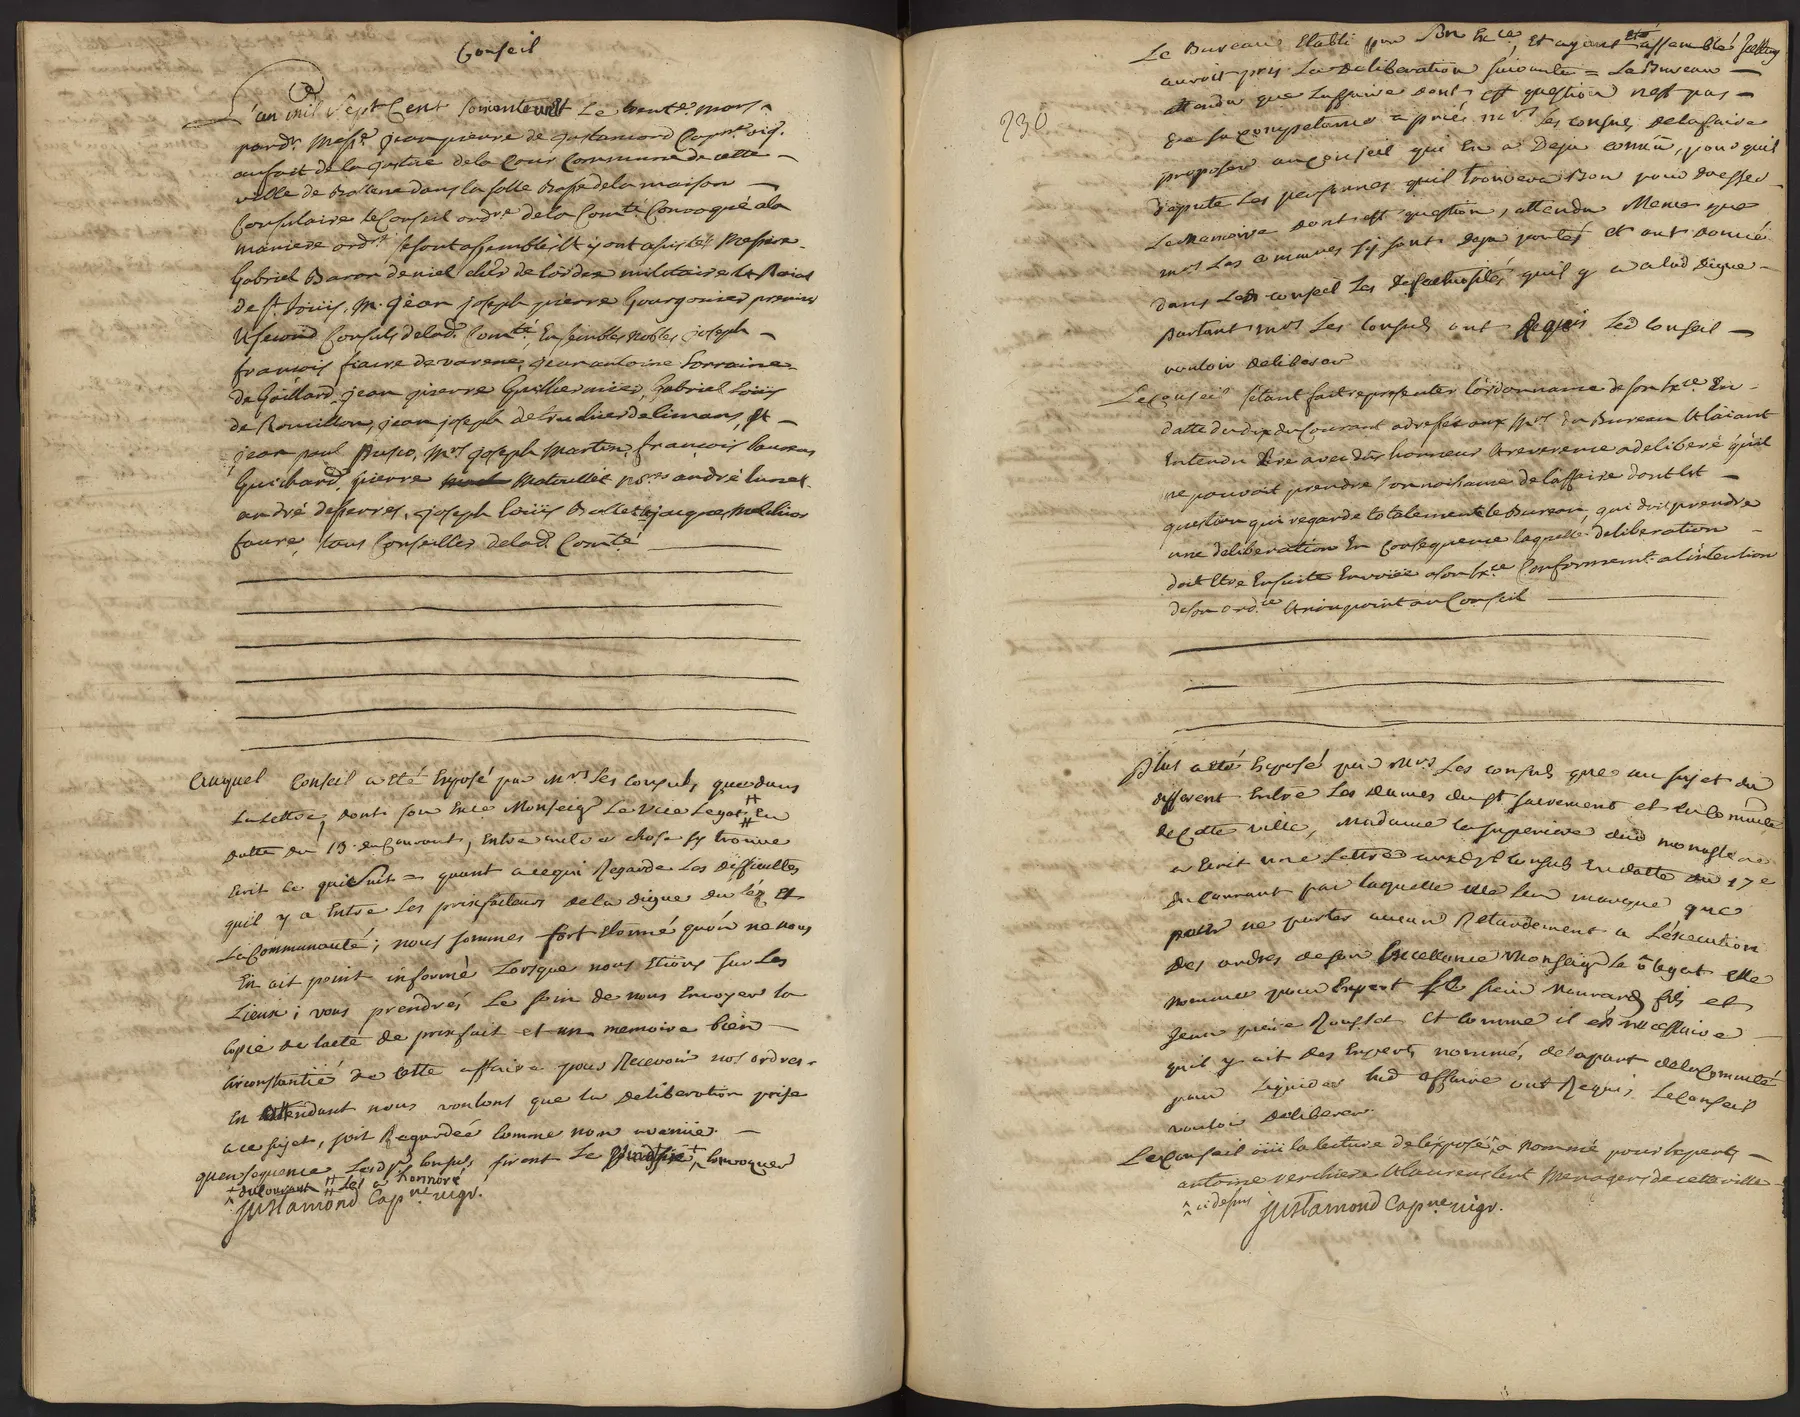 Conseil
L'an mil sept cent soixante et le trente mars
pard.t Mess.e jean pierre de justamond Cap.ne vig.r
au fait de la justice de la Cour Commune de cette
ville de Bollene dans la salle Basse de la maison
Consulaire le Conseil ord.re de la Com.té Convoqué a la
maniere ord.re se sont assemblés Et y ont assistés Messire
Gabriel Baron de niel cher de l'ordre militaire et Roial
de s.t Louis, M. jean joseph pierre Gourgonnier premier
et second Consuls de lad. Com.té, Ensembles nobles joseph
françois fiacre de varene, jean antoine Lorraine
de Gaillard, jean pierre Guilliermier, Gabriel Loüis
de Rouvillon, jean joseph de trudier de limans, Et
jean paul M.rs joseph Martin, françois
Guichard, pierre Matoullet no.res andré
andré deserres, joseph Loüis jacques Melchior
faure, tous Conseillers de lad. Com.té
Auquel Conseil a été Exposé par M.rs les Consuls, que dans
La Lettre, dont son Ence Monseig.r Le Vice Legat En
datte du 13 du Courant, Entre autre chose sy trouve
Ecrit ce qui suit = quant a ce qui Regarde Les Difficultés
quil y a Entre Les prixfacteurs de la digue du léz et
La Communauté ; nous sommes fort Etonné qu'on ne nous
En ait point informé Lorsque nous Etions sur Les
Lieux ; vous prendrés Le soin de nous Envoyer la
Copie de l'acte de prixfait et un memoire bien
circonstantié de cette affaire pour Recevoir nos ordres.
En attendant nous voulons que la Deliberation prise
a ce sujet, soit Regardée comme non avenue.
quensequence Lesd. s.rs Consuls, firent Le convoquer
du courant Les a honnoré
Justamond Cap.ne vigr.
230
Le Bureau Etabli par son Ex.ce, Et ayant été assemblé
auroit pris La Deliberation suivante = Le Bureau
attendu que L'affaire dont est question n'est pas
de sa Compétance a priés M.rs les Consuls de la faire
proposer au Conseil qui En a Deja connû, pour quil
députe Les personnes quil trouvera Bon pour dresser
Le memoire dont est question, attendu Meme que
M.rs Les Communes sy sont deja portés et ont donné
dans Led. Conseil Les quil y a a lad Digue
partant M.rs Les Consuls ont Requis Led Conseil
vouloir deliberer
Le Conseil s'étant fait representer l'ordonnance de son Ex.ce En
datte du dix du Courant adressée aux M.rs du Bureau Et l'aiant
Entendu lire avec dûs honneur et reverence a deliberé qu'il
ne pouvoit prendre Connoissance de l'affaire dont Est
question qui regarde totalement le Bureau, qui doit prendre
une deliberation En Consequence laquelle deliberation
doit Etre Ensuite Envoiée a son Ex.ce Conformem.t a l'intention
de son ord.ce et non point au Conseil
Plus a été Exposé par M.rs Les Consuls que au sujet du
different Entre Les Dames du s.t sacrement et la Comm.té
de Cette ville, Madame la superieure dud monastere
a Ecrit une Lettre auxd. s.rs Consuls En datte du 17e
du Courant par laquelle elle leur marque que
pour ne porter aucun Retardement a L'éxecution
des ordres de son Excellance Monseig.r le v. legat elle
nomme pour Expert le sieur fils et
jean pierre Roussot et comme il est necessaire
quil y ait des Experts, nommés de la part de la Comm.té
pour Liquider lad affaire ont Requis Le Conseil
vouloir deliberer.
Le Conseil oüi la lecture de l'exposé, a nommé pour Experts
antoine verchiere et Laurens Menagers de cette ville
ci dessus Justamond Cap.ne vigr.